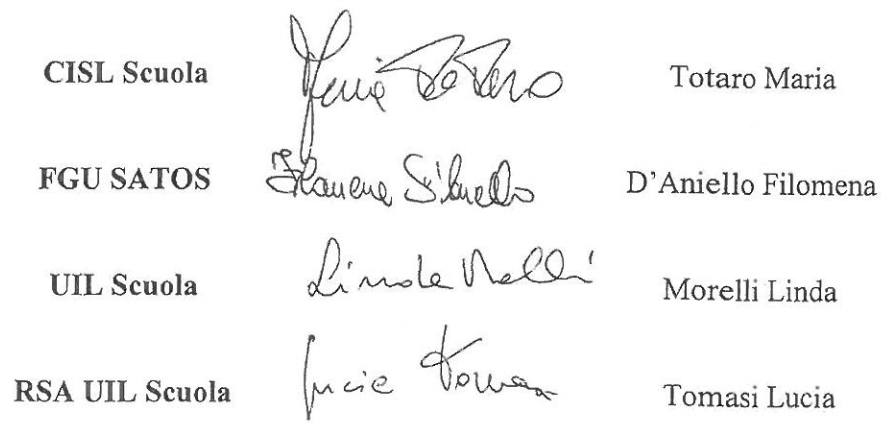 CISL Scuola Maria Totaro Totaro Maria
FGU SATOS Filomena D'Aniello D'Aniello Filomena
UIL Scuola Linda Morelli Morelli Linda
RSA UIL Scuola Lucia Tomasi Tomasi Lucia